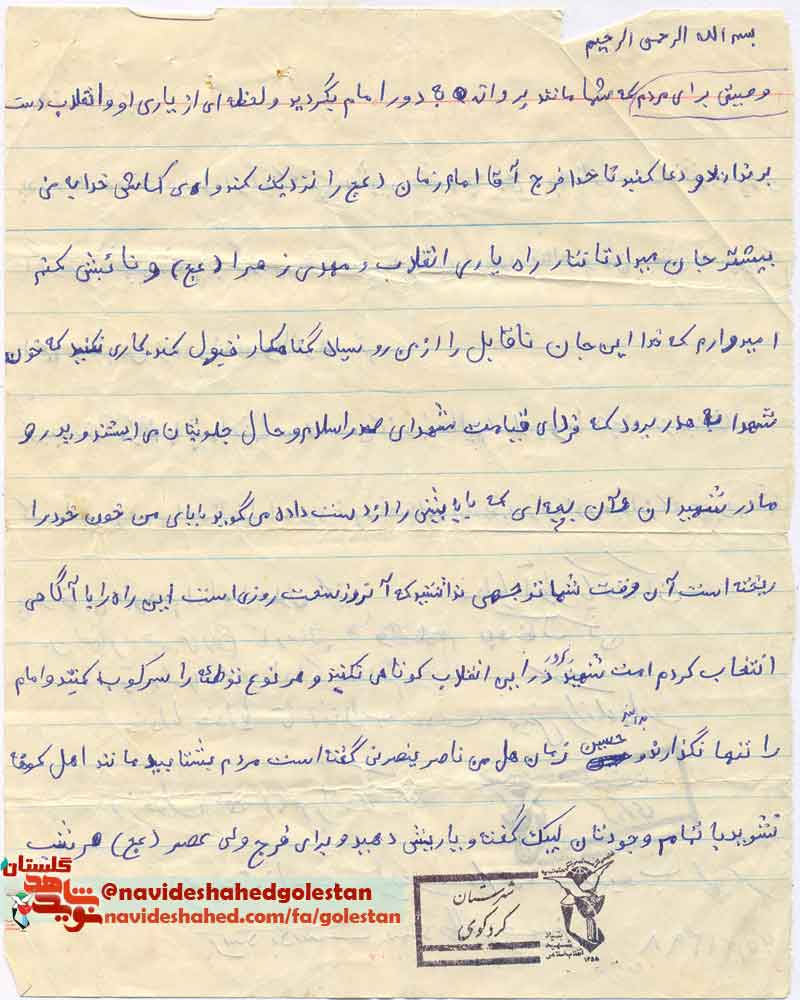 بسم الله الرحمن الرحیم
وصیتی برای مردم که شما مانند پروانه به دور امام بگردید و لحظه ای از یاری او و انقلاب دست
برندارید و دعا کنید تا خدا فرج آقا امام زمان (عج) را نزدیک کند و ای کاش خدا به من
بیشتر جان میداد تا نثار راه یاری انقلاب و مهدی زهرا (عج) و نائبش کنم
امیدوارم که خدا این جان ناقابل را از من رو سیاه گناهکار قبول کند. کاری نکنید که خون
شهدا به هدر برود که فردای قیامت شهدای صدر اسلام و حال جلویتان می ایستند و پدر و
مادر شهیدان و آن بچه ای که باباش را از دست داده می گوید بابای من خون خود را
ریخته است آن وقت شما توجهی نداشتید که آنروز سخت روزی است این راه را با آگاهی
انتخاب کردم امت شهید پرور در این انقلاب کوتاهی نکنید و هر نوع توطئه را سرکوب کنید و امام
را تنها نگذارید و بدانید حسین زمان هل من ناصر ینصرنی گفته است مردم بشتابید مانند اهل کوفه
نشوید با تمام وجودتان لبیک گفته و یاریش دهید و برای فرج ولی عصر (عج) هر شب
شهرستان
کردکوی
بنیاد
شهید
انقلاب اسلامی
۱۳۵۸
نوید شاهد
گلستان
@navideshahedgolestan
navideshahed.com/fa/golestan